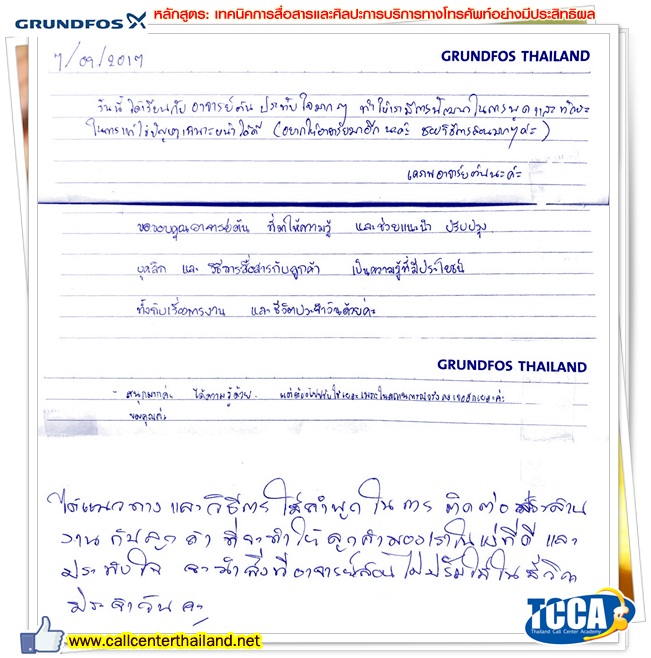 GRUNDFOS หลักสูตร: เทคนิคการสื่อสารและศิลปะการบริการทางโทรศัพท์อย่างมีประสิทธิผล
7/09/2017
GRUNDFOS THAILAND
วันนี้ได้เรียนกับ อาจารย์ต้น ประทับใจมากๆ ทำให้เรามีการพัฒนาในการพูด และ ทักษะ
ในการแก้ไขปัญหาเฉพาะหน้าได้ดี (อยากให้อาจารย์มาอีก นะค่ะ ชอบวิธีการสอนมากๆค่ะ)
เคารพอาจารย์ต้นนะค่ะ
ขอขอบคุณอาจารย์ต้น ที่ให้ความรู้ และช่วยแนะนำ ปรับปรุง
บุคลิก และ วิธีการสื่อสารกับลูกค้า เป็นความรู้ที่มีประโยชน์
ทั้งกับเรื่องการงาน และชีวิตประจำวันด้วยค่ะ
GRUNDFOS THAILAND
- สนุกมากค่ะ ได้ความรู้ด้วย
ขอบคุณค่ะ
ได้แนวทาง และวิธีการ ใช้คำพูด ในการ ติดต่อ ประสาน
งาน กับลูกค้า ที่จะทำให้ ลูกค้ามองเราในแง่ที่ดี และ
ประทับใจ จะนำสิ่งที่อาจารย์สอน ไปปรับใช้ในชีวิต
ประจำวันค่ะ
www.callcenterthailand.net
TCCA
Thailand Call Center Academy